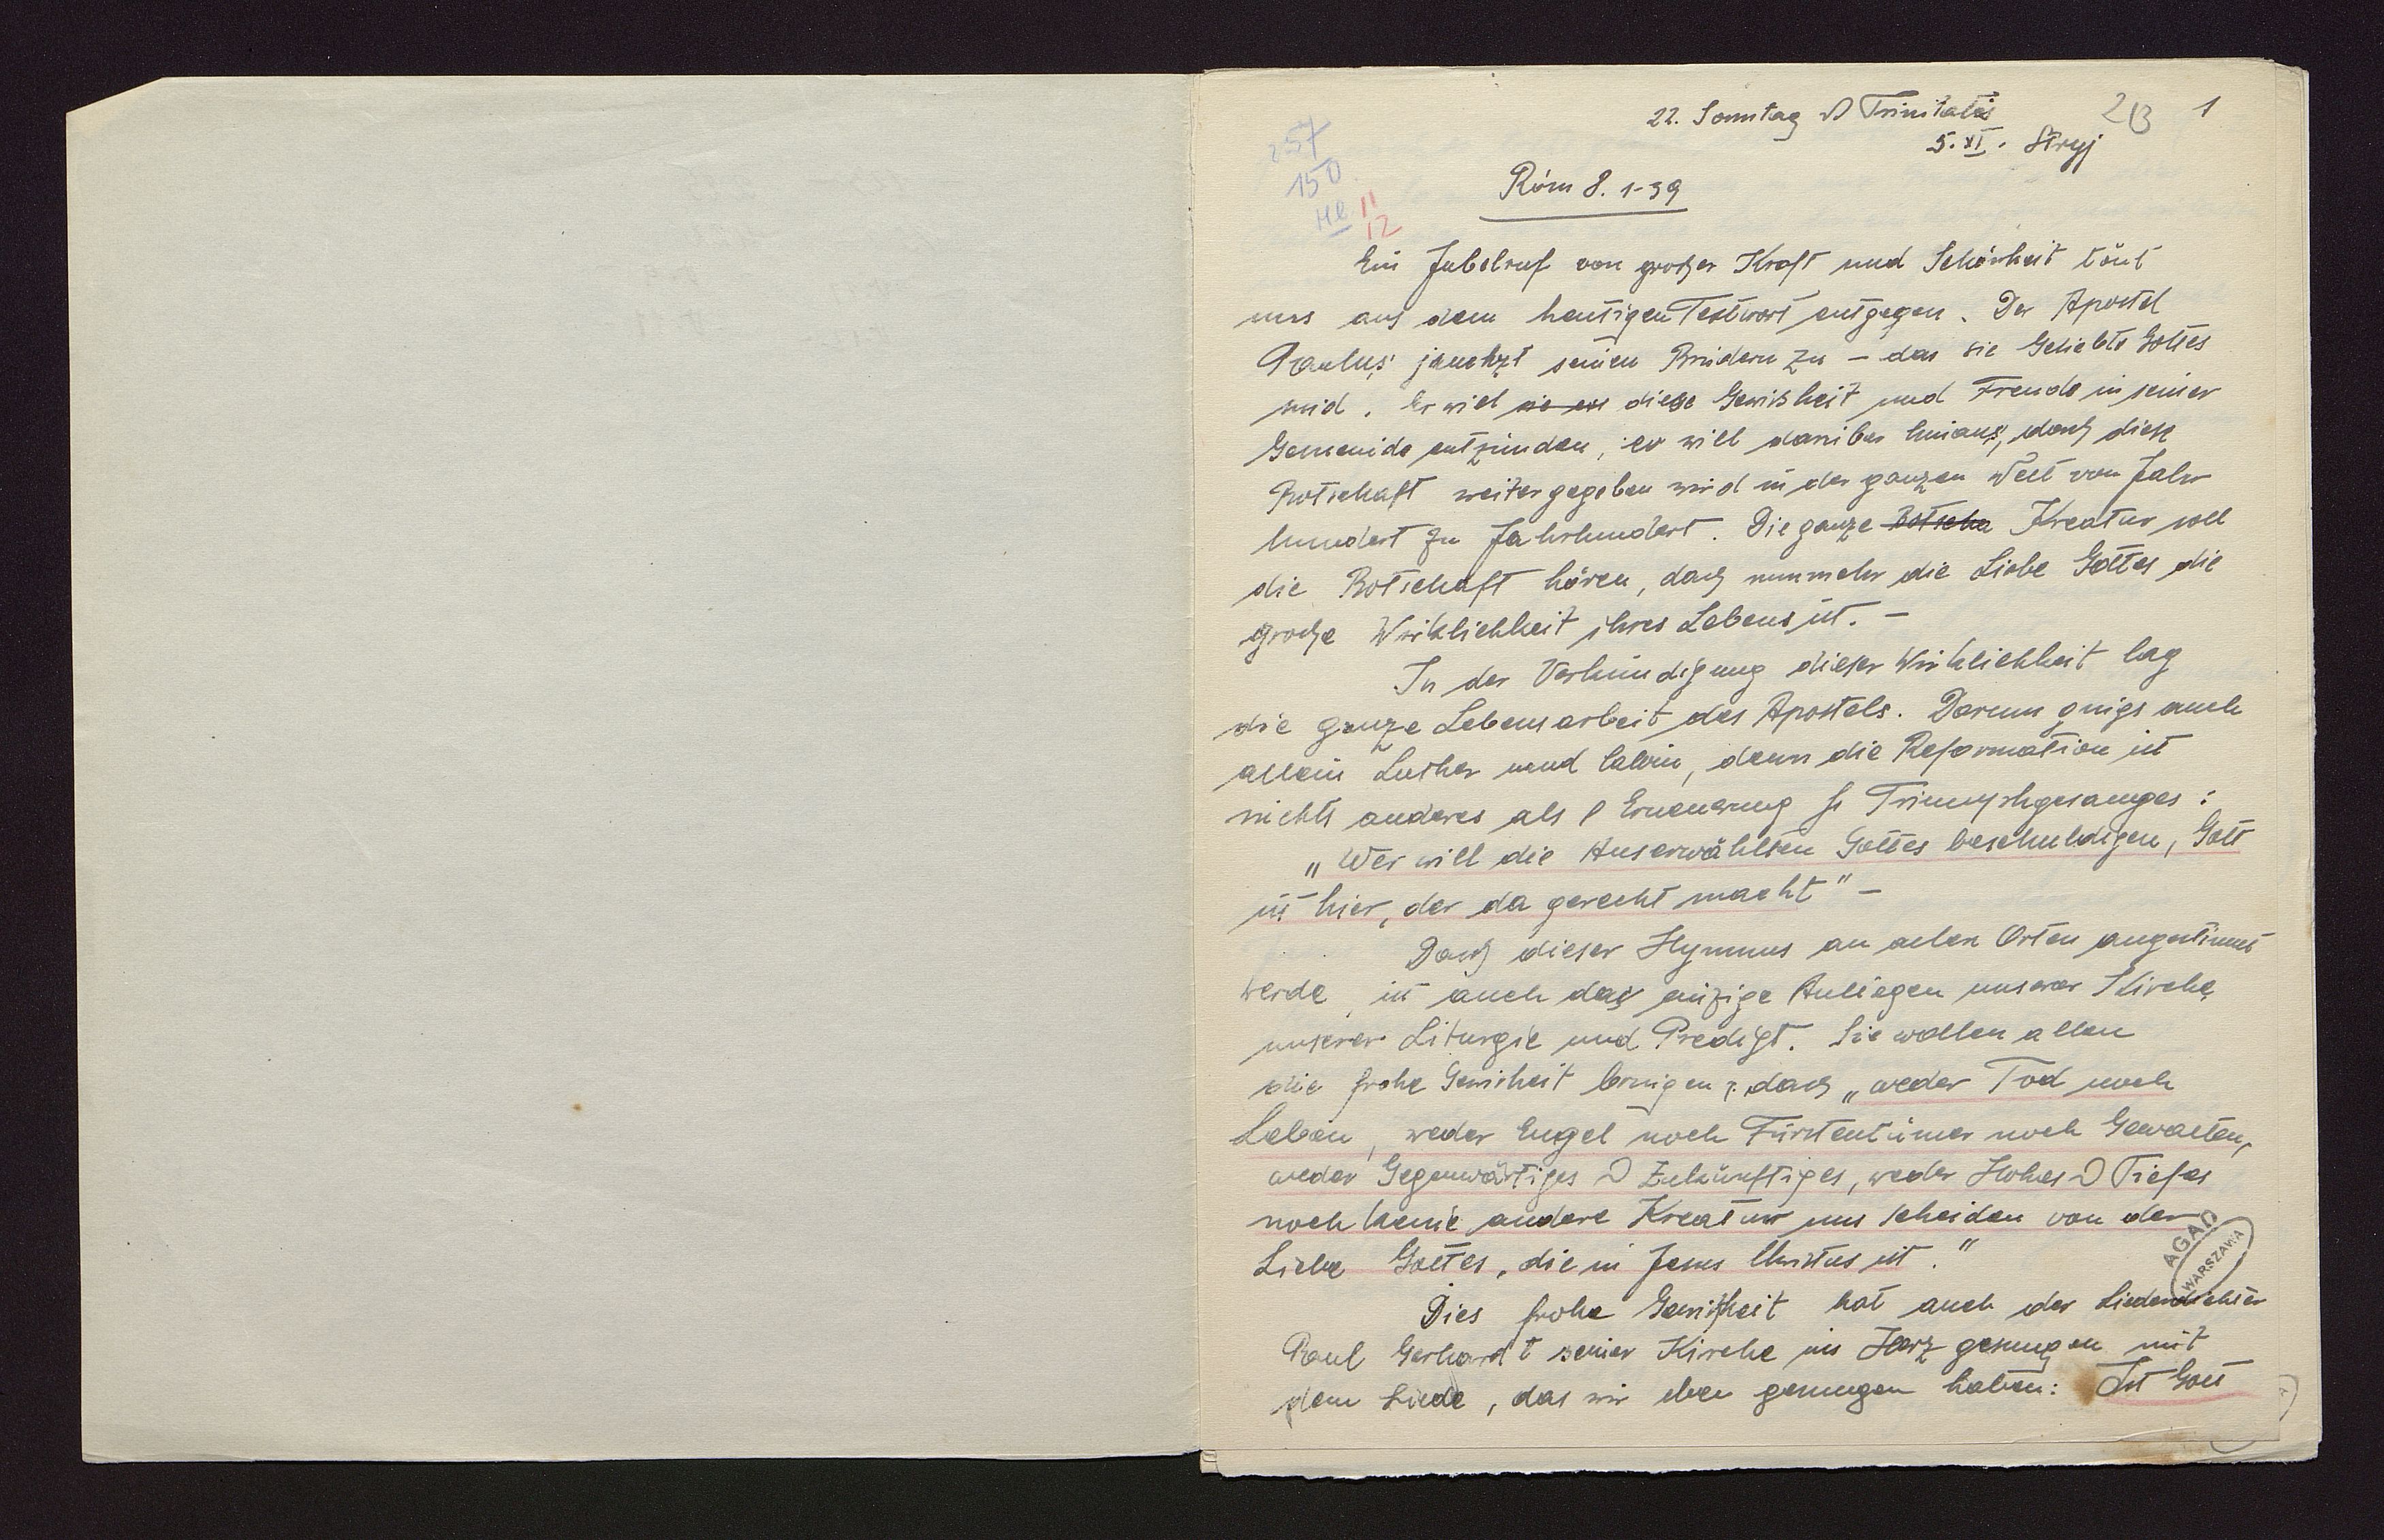 22. Sonntag n Trinitatis
213 1
5. XI. Stryj
257
150
He 11
12
Röm 8. 1-39
Ein Jubelruf von großer Kraft und Schönheit tönt
uns aus dem heutigen Textwort entgegen. Der Apostel
Paulus jauchzt seinen Brüdern zu – das sie Geliebte Gottes
sind. Er will sie diese Gewisheit und Freude in seiner
Gemeinde entzünden, er will darüber hinaus, daß diese
Botschaft weitergegeben wird in der ganzen Welt von Jahr
hundert zu Jahrhundert. Die ganze Botscha Kreatur soll
die Botschaft hören, daß nunmehr die Liebe Gottes die
große Wirklichkeit ihres Lebens ist. –
In der Verkündigung dieser Wirklichkeit lag
die ganze Lebensarbeit des Apostels. Darum gings auch
allein Luther und Calvin, denn die Reformation ist
nichts anderes als Erneuerung Triumphgesanges :
„Wer will die Auserwählten Gottes beschuldigen, Gott
ist hier, der da gerecht macht" –
Daß dieser Hymnus an allen Orten angestimmt
werde, ist auch das einzige Anliegen unserer Kirche,
unserer Liturgie und Predigt. Sie wollen allen
die frohe Gewisheit bringen, daß „weder Tod noch
Leben, weder Engel noch Fürstentümer noch Gewalten,
weder Gegenwärtiges n Zukünftiges, weder Hohes n Tiefes
noch keine andere Kreatur uns scheiden von der
Liebe Gottes, die in Jesus Christus ist."
AGAD
WARSZAWA
Dies frohe Gewißheit hat auch der Liederdichter
Paul Gerhardt seiner Kirche ins Herz gesungen mit
dem Liede, das wir eben gesungen haben: Ist Gott